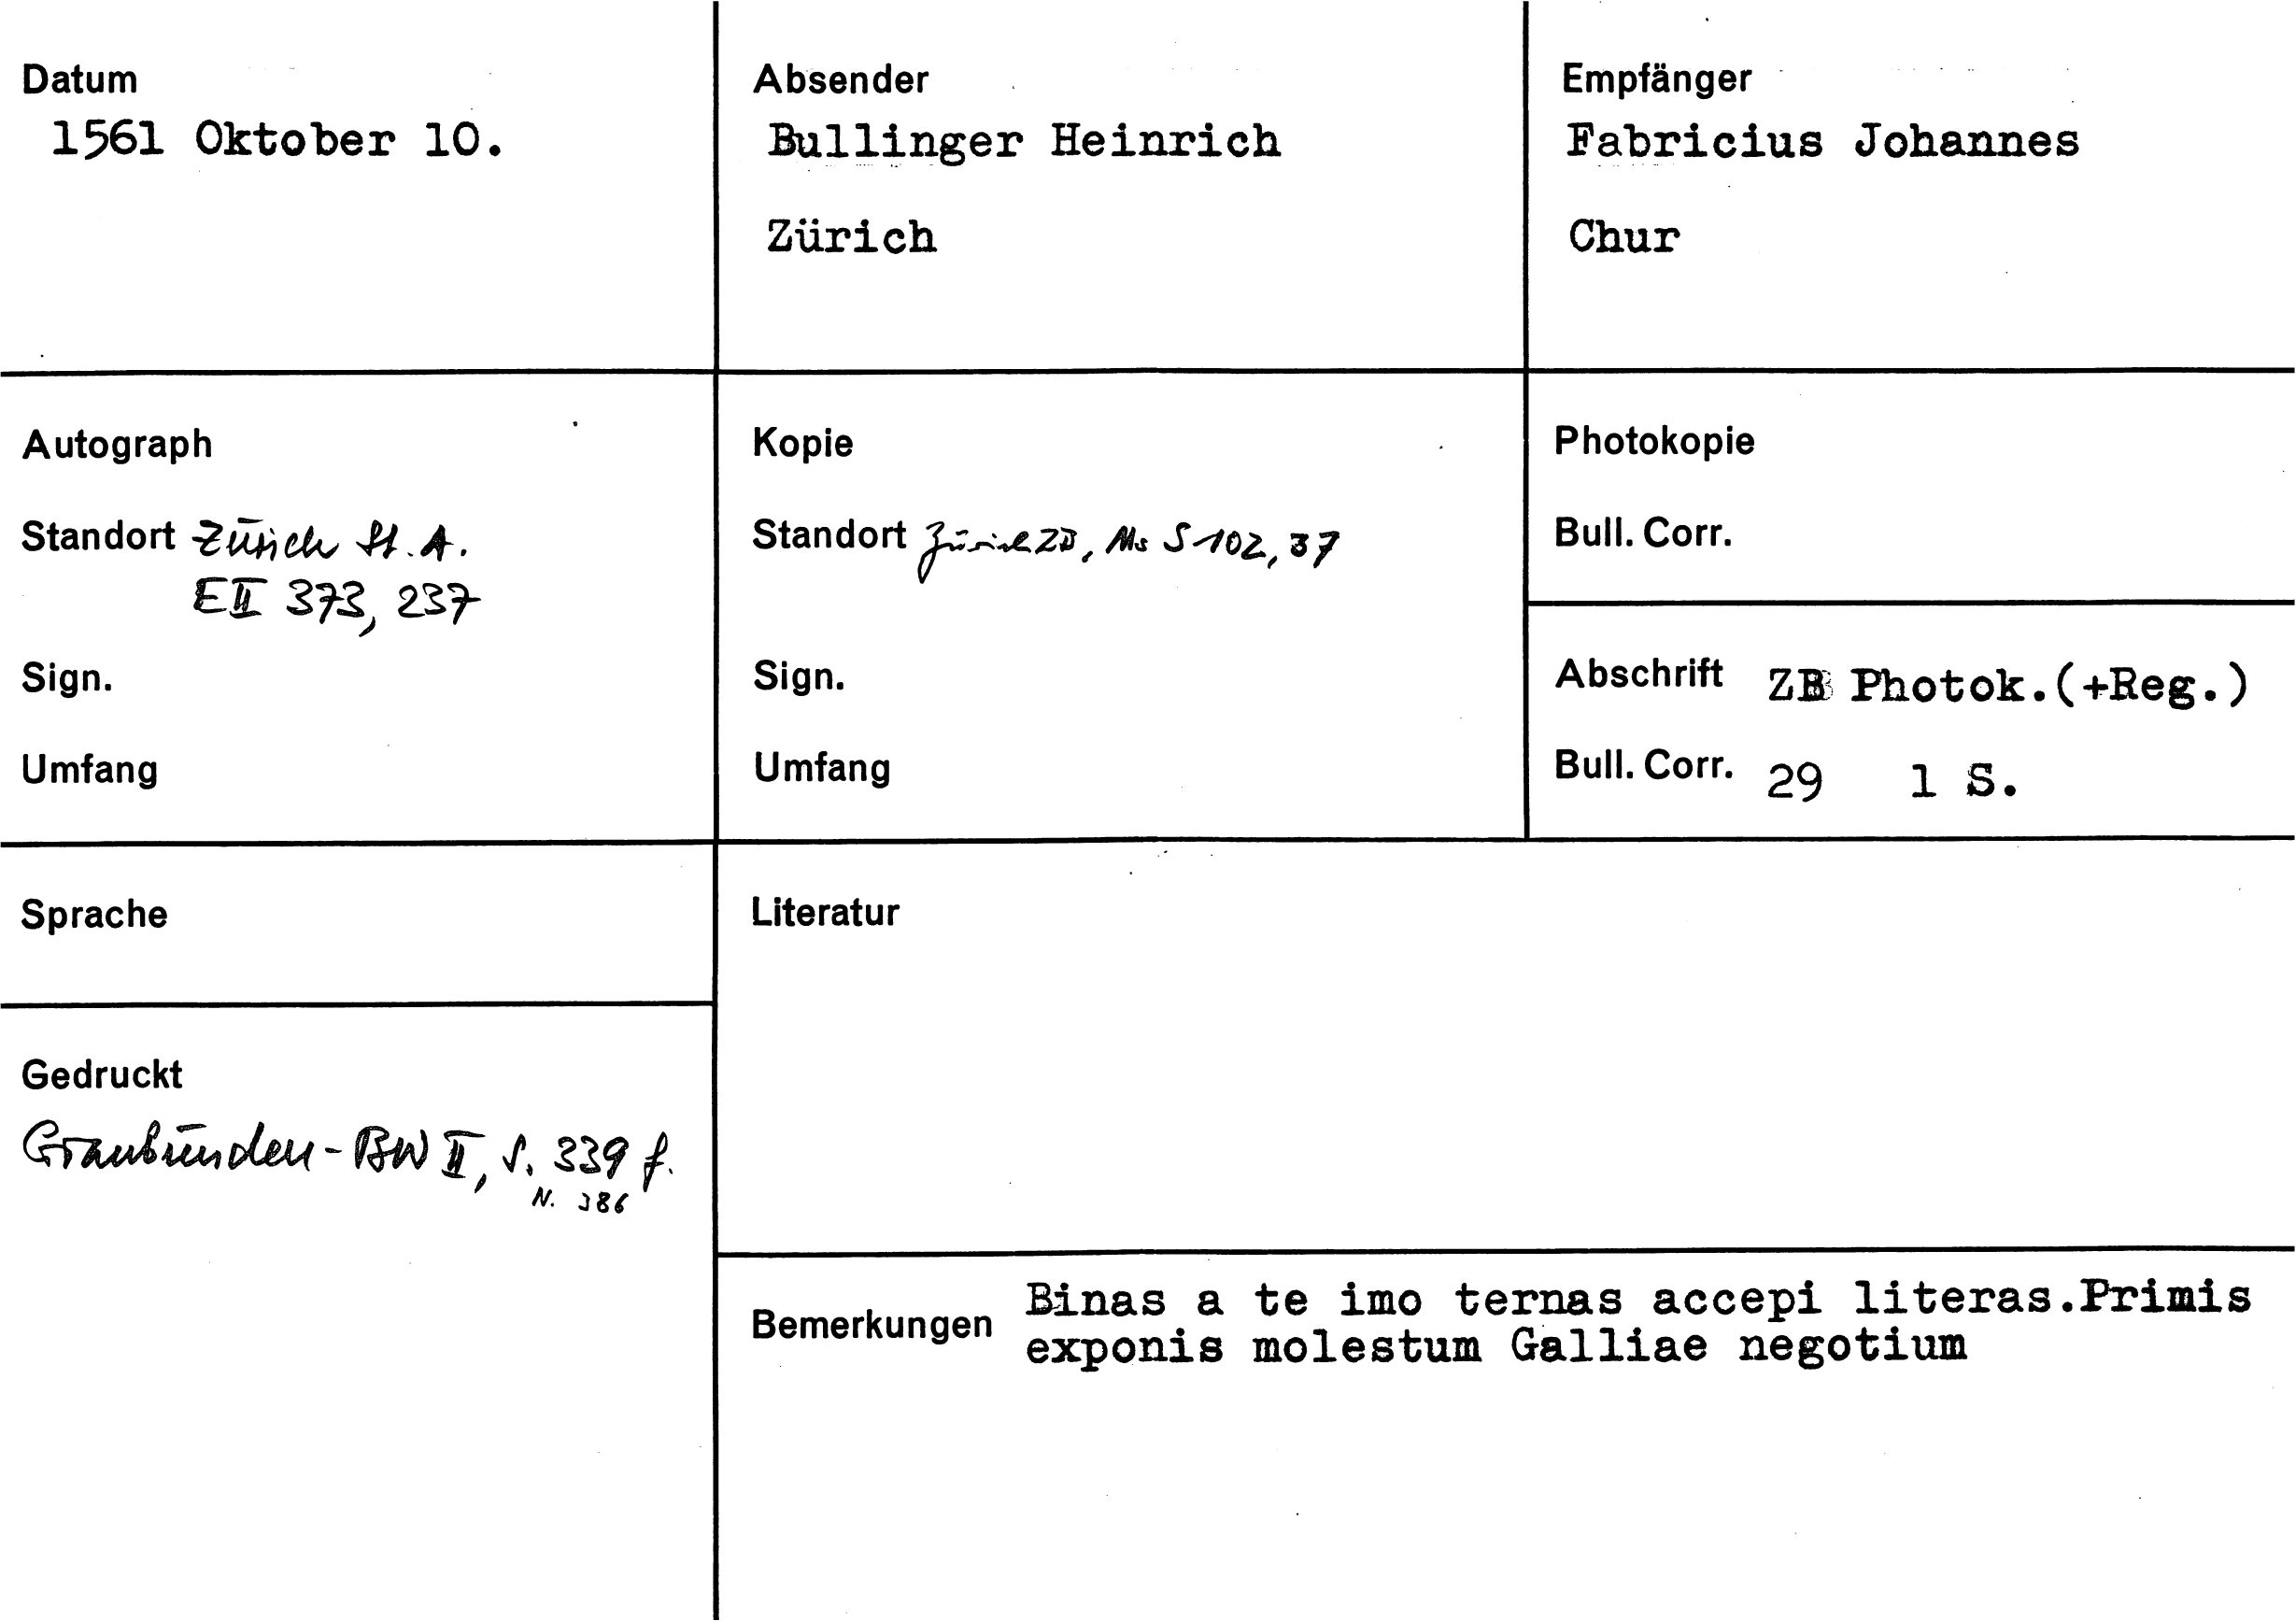 Datum
1561 Oktober 10.
Absender
Bullinger Heinrich
Zürich
Empfänger
Fabricius Johannes
Chur
Autograph
Standort Zürich St. A.
E II 373, 237
Sign.
Umfang
Kopie
Standort Zürich ZB, Ms S 102, 37
Sign.
Umfang
Photokopie
Bull. Corr.
Abschrift ZB Photok.(+Reg.)
Bull. Corr. 29 1 S.
Sprache
Literatur
Gedruckt
Graubünden-BW II, S. 339 f.
N. 386
Bemerkungen Binas a te imo ternas accepi literas.Primis
exponis molestum Galliae negotium